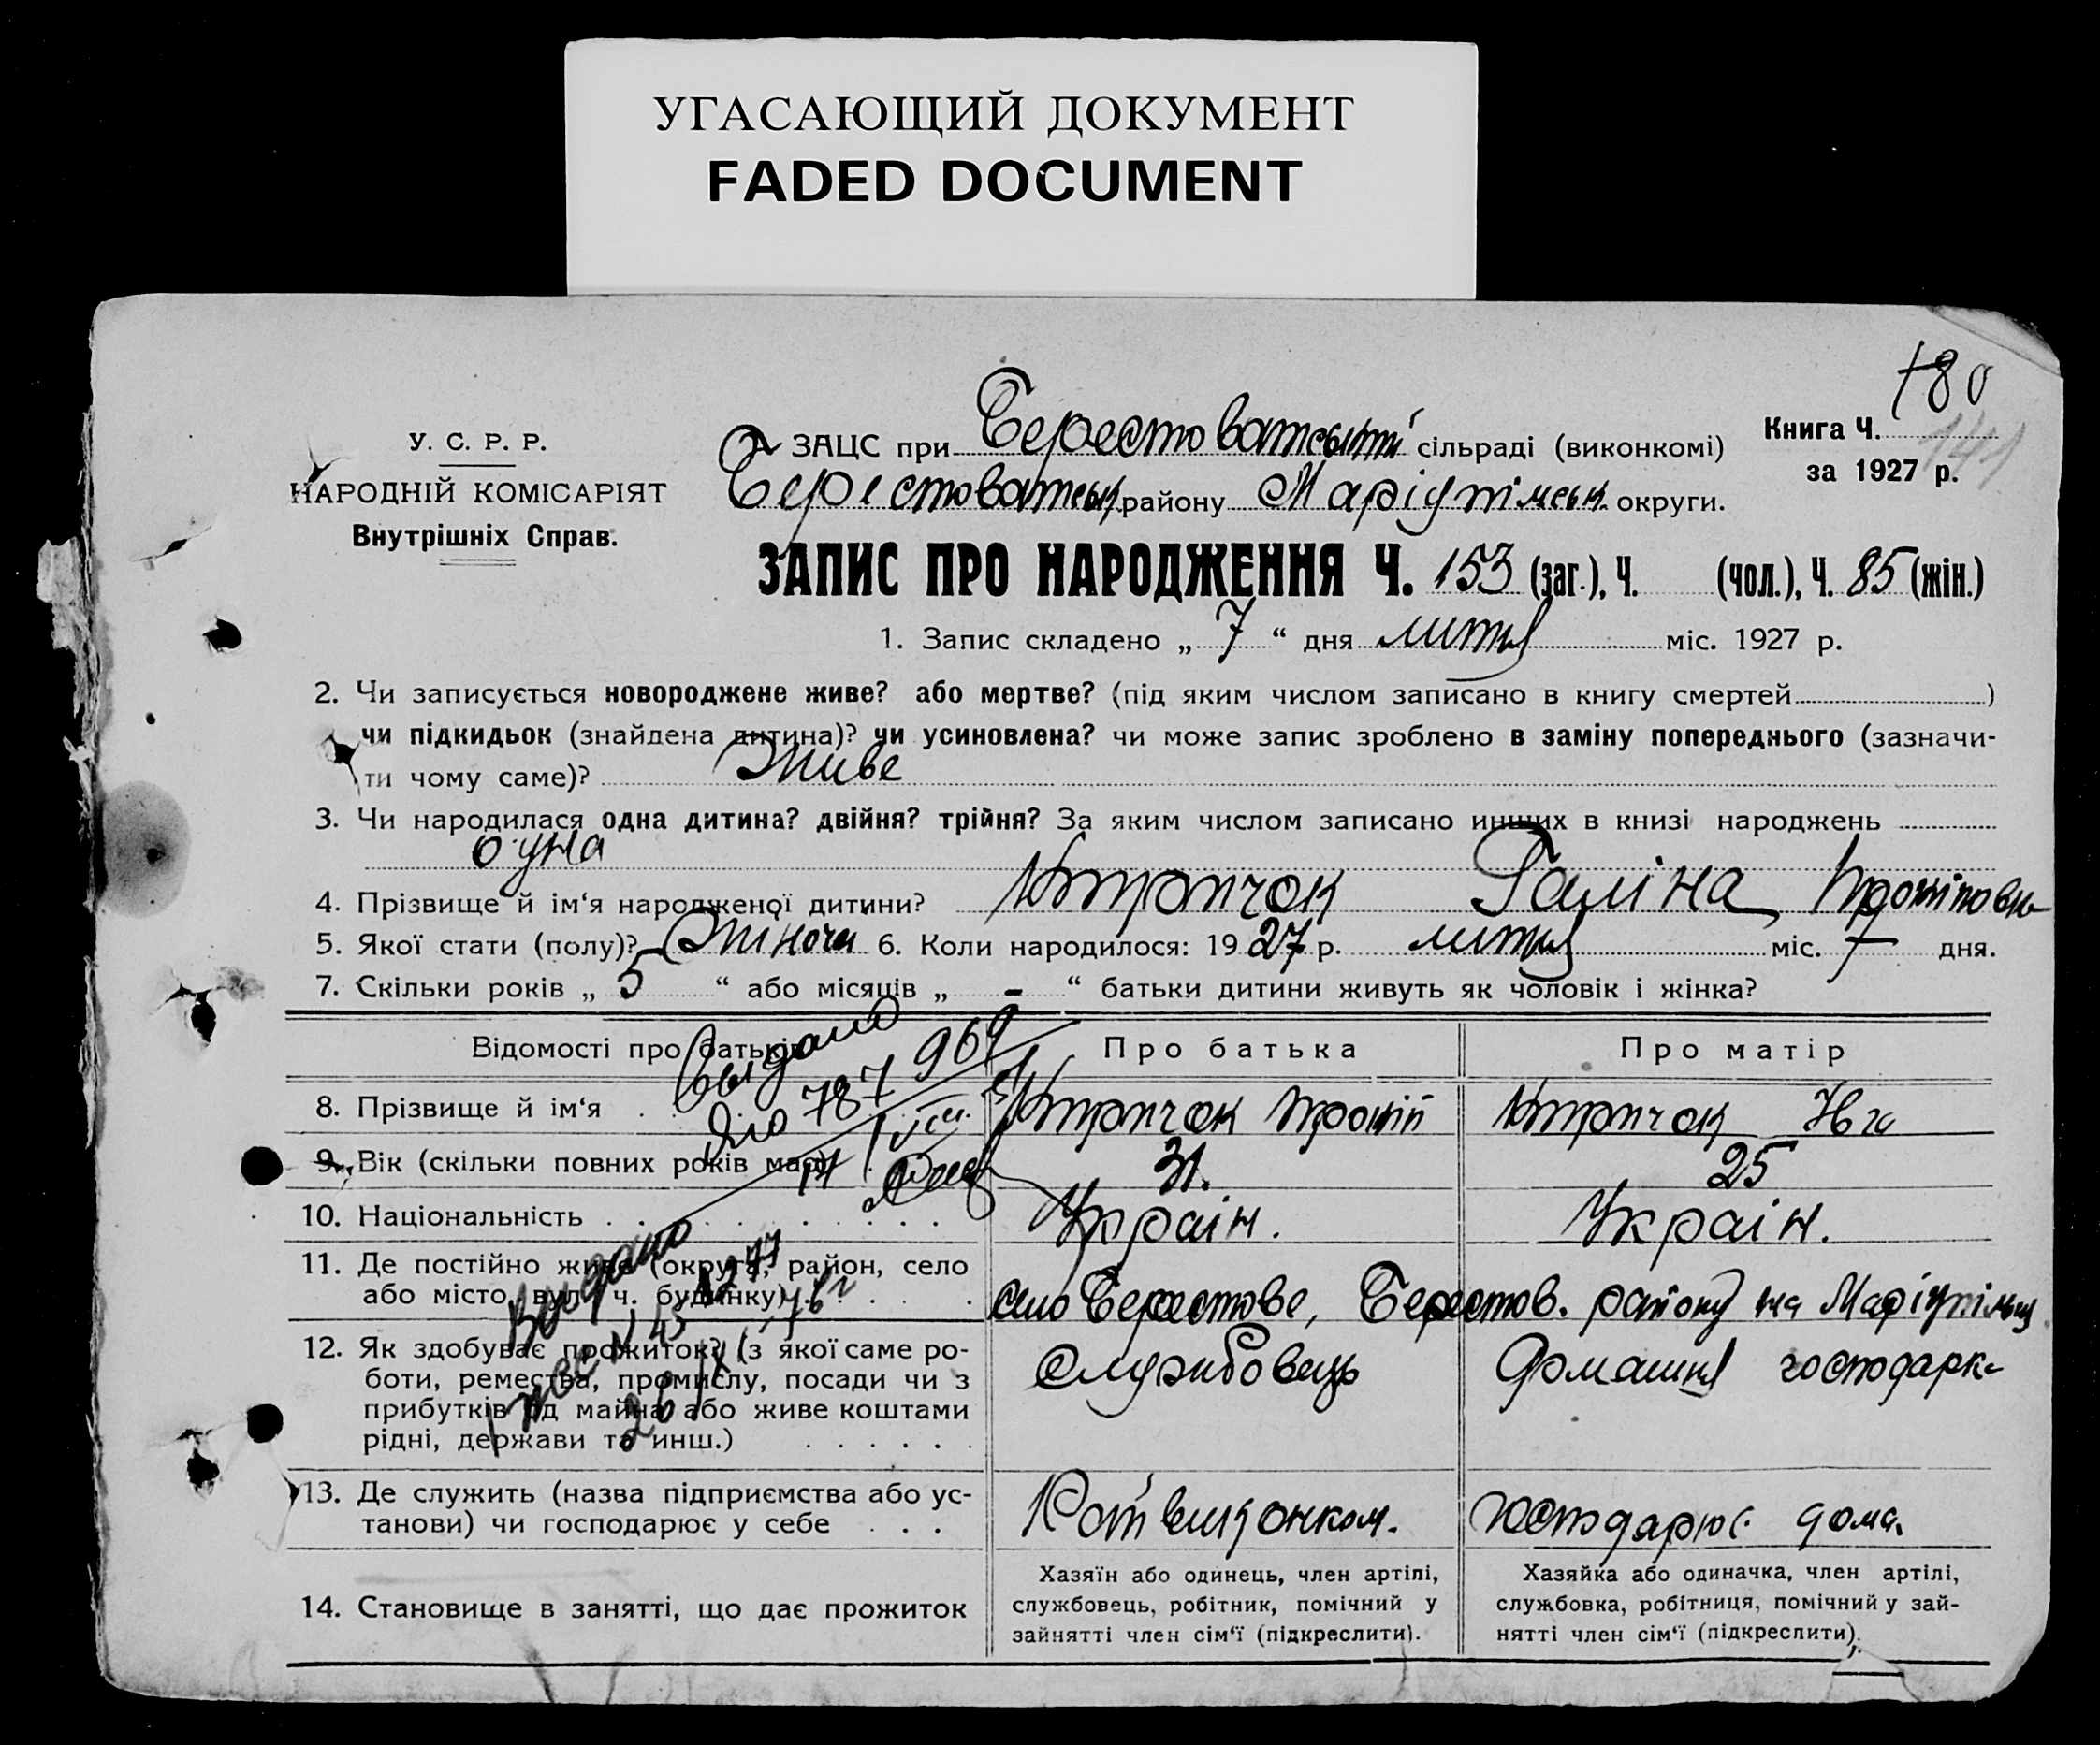 УГАСАЮЩИЙ ДОКУМЕНТ
FADED DOCUMENT
180
141
У. С. Р. Р.
НАРОДНІЙ КОМІСАРІЯТ
Внутрішніх Справ.
ЗАЦС при Берестоватській сільраді (виконкомі)
Берестоватськ. району Маріупільськ. округи.
Книга Ч.
за 1927 р.
ЗАПИС ПРО НАРОДЖЕННЯ Ч. 153 (заг.), Ч. (чол.), Ч. 85 (жін.)
1. Запис складено „ 7 “ дня міс. 1927 р.
2. Чи записується новороджене живе? або мертве? (під яким числом записано в книгу смертей )
чи підкидьок (знайдена дитина)? чи усиновлена? чи може запис зроблено в заміну попереднього (зазначи-
ти чому саме)? Живе
3. Чи народилася одна дитина? двійня? трійня? За яким числом записано инших в книзі народжень
одна
4. Прізвище й ім‘я народженої дитини? Галіна
5. Якої стати (полу)? Жіноча 6. Коли народилося: 1927 р. міс. 7 дня.
7. Скільки років „ 5 “ або місяців „ - “ батьки дитини живуть як чоловік і жінка?
Відомості про батьків
Про батька
Про матір
8. Прізвище й ім‘я . .
9. Вік (скільки повних років має) . 31. 25
10. Національність . . . . . . . . . . Україн. Україн.
11. Де постійно живе (округа, район, село
або місто, вул. ч. будинку) . . . . село Берестове, Берестов. району на Маріупільщ
12. Як здобуває прожиток? (з якої саме ро-
боти, ремества, промислу, посади чи з
прибутків од майна або живе коштами
рідні, держави та инш.) . . . . . .
Службовець
Домашня господарка
13. Де служить (назва підприємства або ус-
танови) чи господарює у себе . . .
Райвиконком.
господарює дома.
14. Становище в занятті, що дає прожиток
Хазяїн або одинець, член артілі,
службовець, робітник, помічний у
зайнятті член сім‘ї (підкреслити).
Хазяйка або одиначка, член артілі,
службовка, робітниця, помічний у зай-
нятті член сім‘ї (підкреслити).
Выдано
787969
Выдано